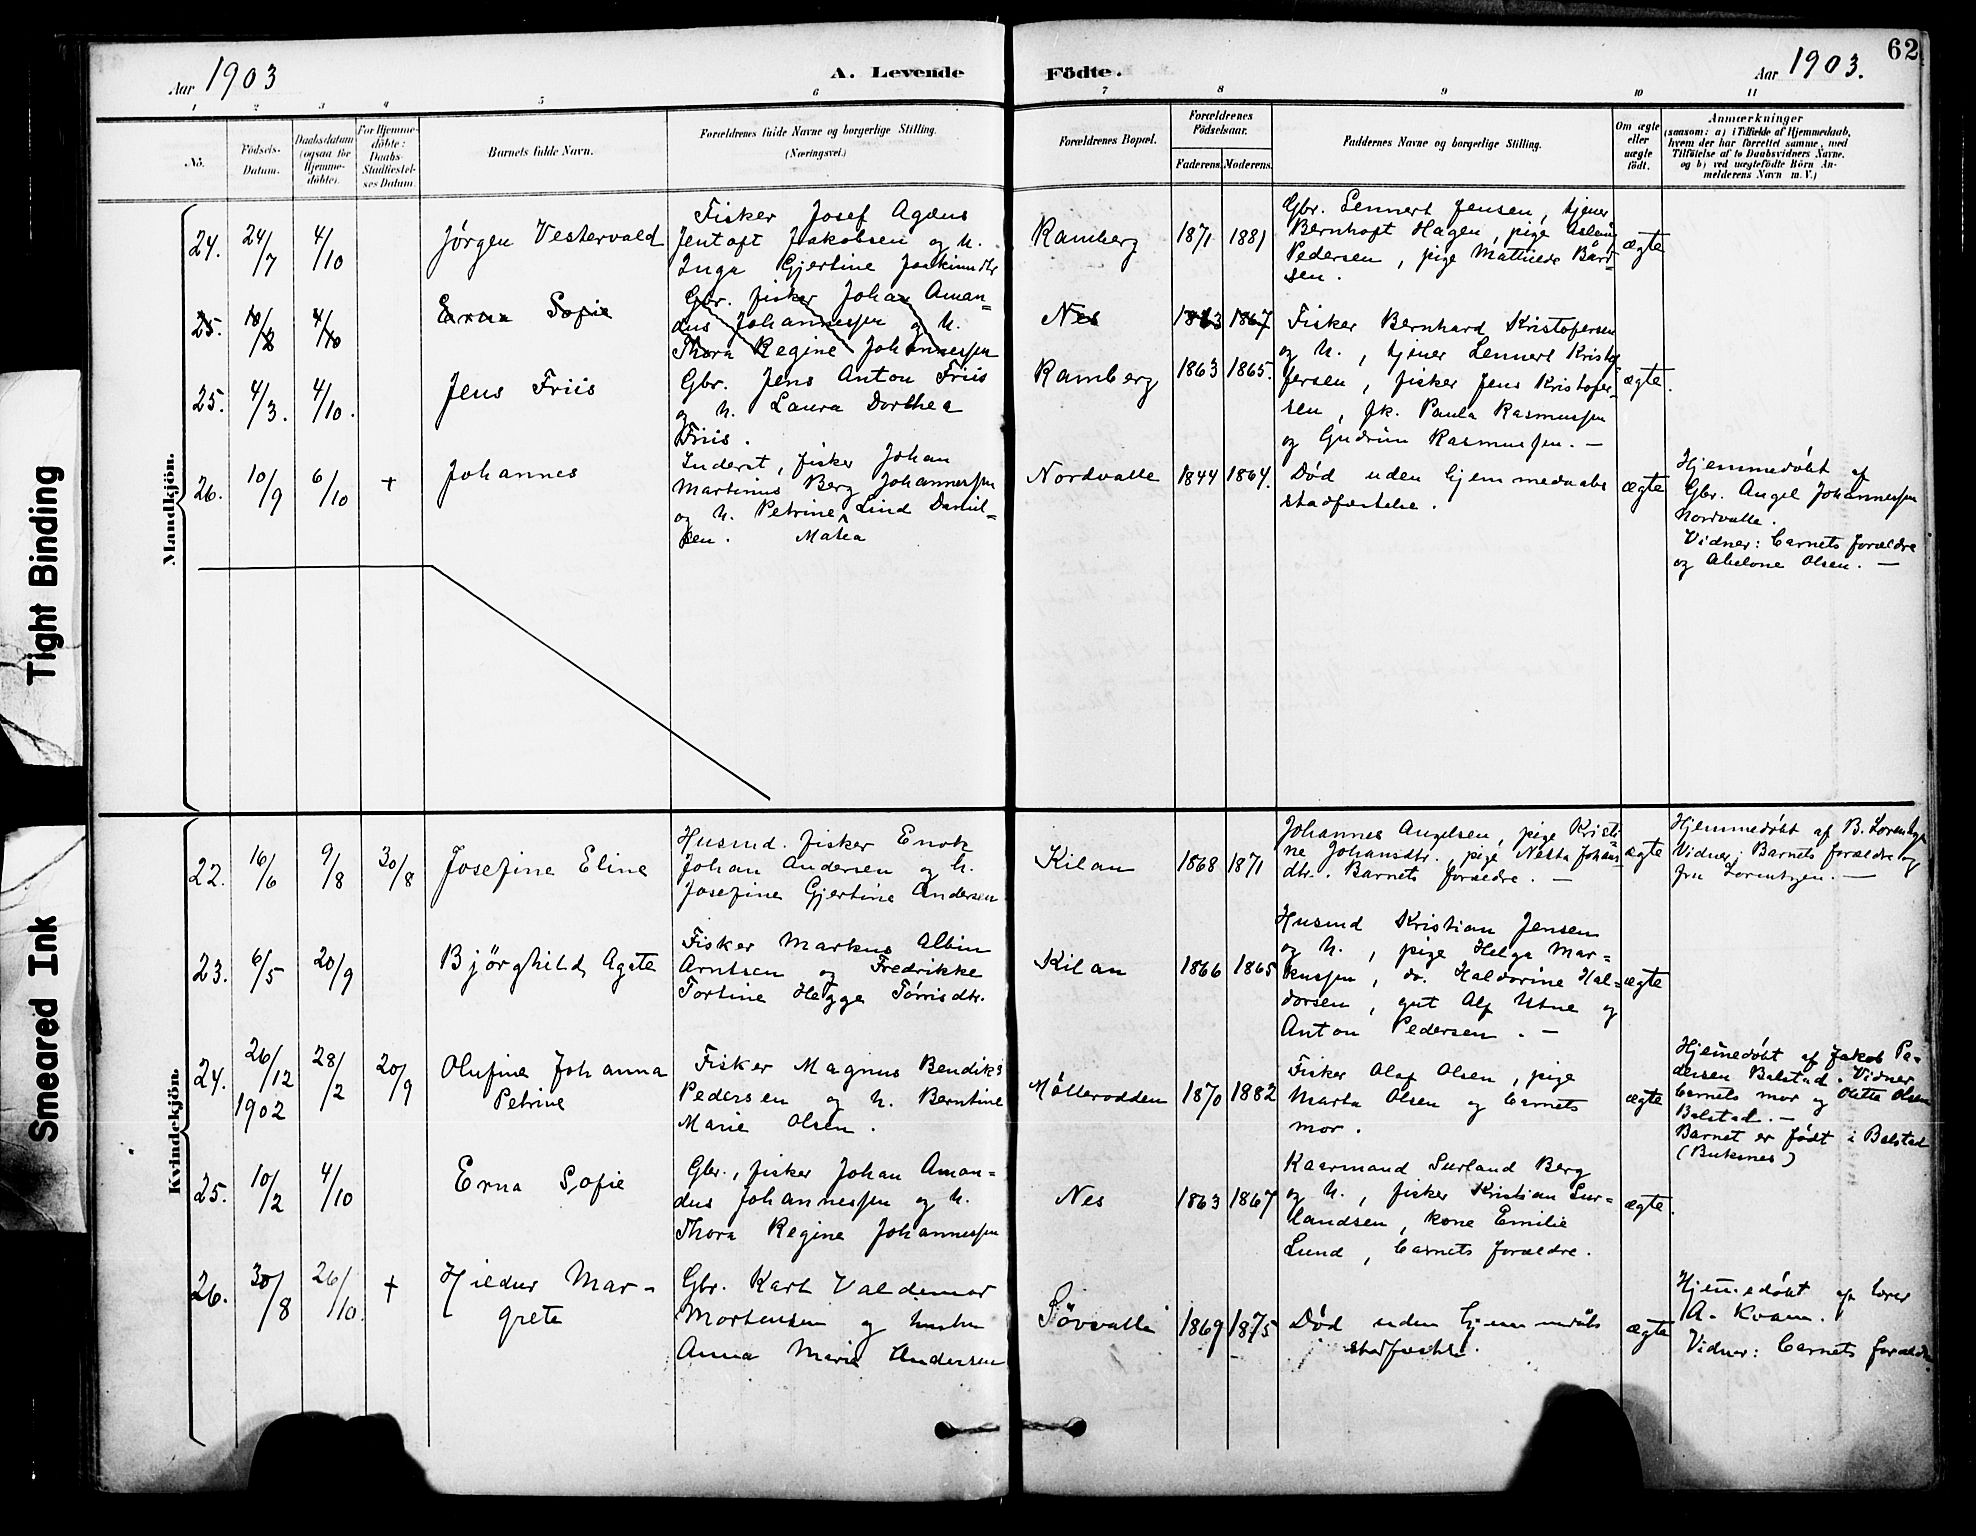 62
Aar 1903
A. Levende
Födte.
Aar 1903.
1 2 3 4 5 6 7 8 9 10 11
No.
Födsels-
Datum.
Daabsdatum
(ogsaa for
Hjemme-
döbte).
For Hjemme-
döbte:
Daabs-
Stadfæstel-
ses Datum.
Barnets fulde Navn.
Forældrenes fulde Navne og borgerlige Stilling.
(Næringsvei.)
Forældrenes Bopæl.
Forældrenes
Födselsaar.
Faderens.
Moderens.
Faddernes Navne og borgerlige Stilling.
Om ægte
eller
uægte
födt.
Anmærkninger
(saasom: a) i Tilfælde af Hjemmedaab,
hvem der har forrettet samme, med
Tilföielse af to Daabsvidners Navne,
og b) ved uægtefödte Börn An-
melderens Navn m. V.)
Mandkjön.
24.
24/7
4/10
Jørgen Vestervald
Fisker Josef Agæus
Jentoft Jakobsen og h.
Inga Gjertine Joakimsdtr
Ramberg
1871
1881
Gbr. Lennert Jensen, tjener
Bernhoft Hagen, pige
Pedersen, pige Mathilde Bård-
sen.
ægte
25.
4/10
Erna Sofie
Gbr. fisker Johan Aman-
dus Johannessen og h.
Thora Regine Johannessen
Nes
1863
1867
25.
4/3.
4/10.
Jens Friis
Gbr. Jens Anton Friis
og h. Laura Dorthea
Friis.
Ramberg
1863
1865.
Fisker Bernhard Kristofersen
og h., tjener Lennert Kristof-
fersen, fisker Jens Kristofer-
sen, fk. Paula Rasmussen
og Gudrun Rasmussen. —
ægte.
26.
10/9
6/10
+
Johannes
Inderst, fisker Johan
Martinus Berg Johannessen
og h. Petrine Lind Daniel-
sen. Matea
Nordvalle
1844
1864.
Død uden hjemmedaabs
stadfæstelse.
ægte
Hjemmedøbt af
Gbr. Angel Johannessen
Nordvalle.
Vidner: barnets forældre
og Abelone Olsen. —
Kvindekjön.
22.
16/6
9/8
30/8
Josefine Eline
Husmd. fisker Enok
Johan Andersen og h.
Josefine Gjertine Andersen
Kilan
1868
1871
Johannes Angelsen, pige Kristi-
ne Johansdtr., pige Netta Johans-
dtr. Barnets forældre. —
ægte
Hjemmedøbt af B. Lorentzen
Vidner: Barnets forældre og
fru Lorentzen. —
23.
6/5
20/9
Bjørghild Agate
Fisker Markus Albin
Arntsen og Fredrikke
Tortine Hegge Tørrisdtr.
Kilan
1866
1865
Husmd Kristian Jensen
og h., pige Helga Mar-
kussen, do. Haldorine Hal-
dorsen, gut Alf Utne og
Anton Pedersen. —
ægte
24.
26/12
1902
28/2
20/9
Olufine Johanna
Petrine
Fisker Magnus Bendiks
Pedersen og h. Berntine
Marie Olsen.
Møllerodden
1870
1882
Fisker Olaf Olsen, pige
Marta Olsen og barnets
mor.
ægte
Hjemmedøbt af Jakob Pe-
dersen Balstad. Vidner
barnets mor og Olette Olsen
Balstad. —
Barnet er født i Balstad
(Buksnes)
25.
10/2
4/10
Erna Sofie
Gbr., fisker Johan Aman-
dus Johannessen og h.
Thora Regine Johannessen
Nes
1863
1867
Kaarmand Surland Berg
og h., fisker Kristian Sur-
landsen, kone Emilie
Lund, barnets forældre.
ægte.
26.
30/8
26/10.
+
Hildur Mar-
grete
Gbr. Karl Valdemar
Mortensen og hustru
Anna Marie Andersen
Sövvalle
1869
1875
Død uden hjemmedåbs
stadfæstelse.
ægte
Hjemmedøbt af lærer
A. Kvam.
Vidner: barnets forældre.
Tight Binding
Smeared Ink